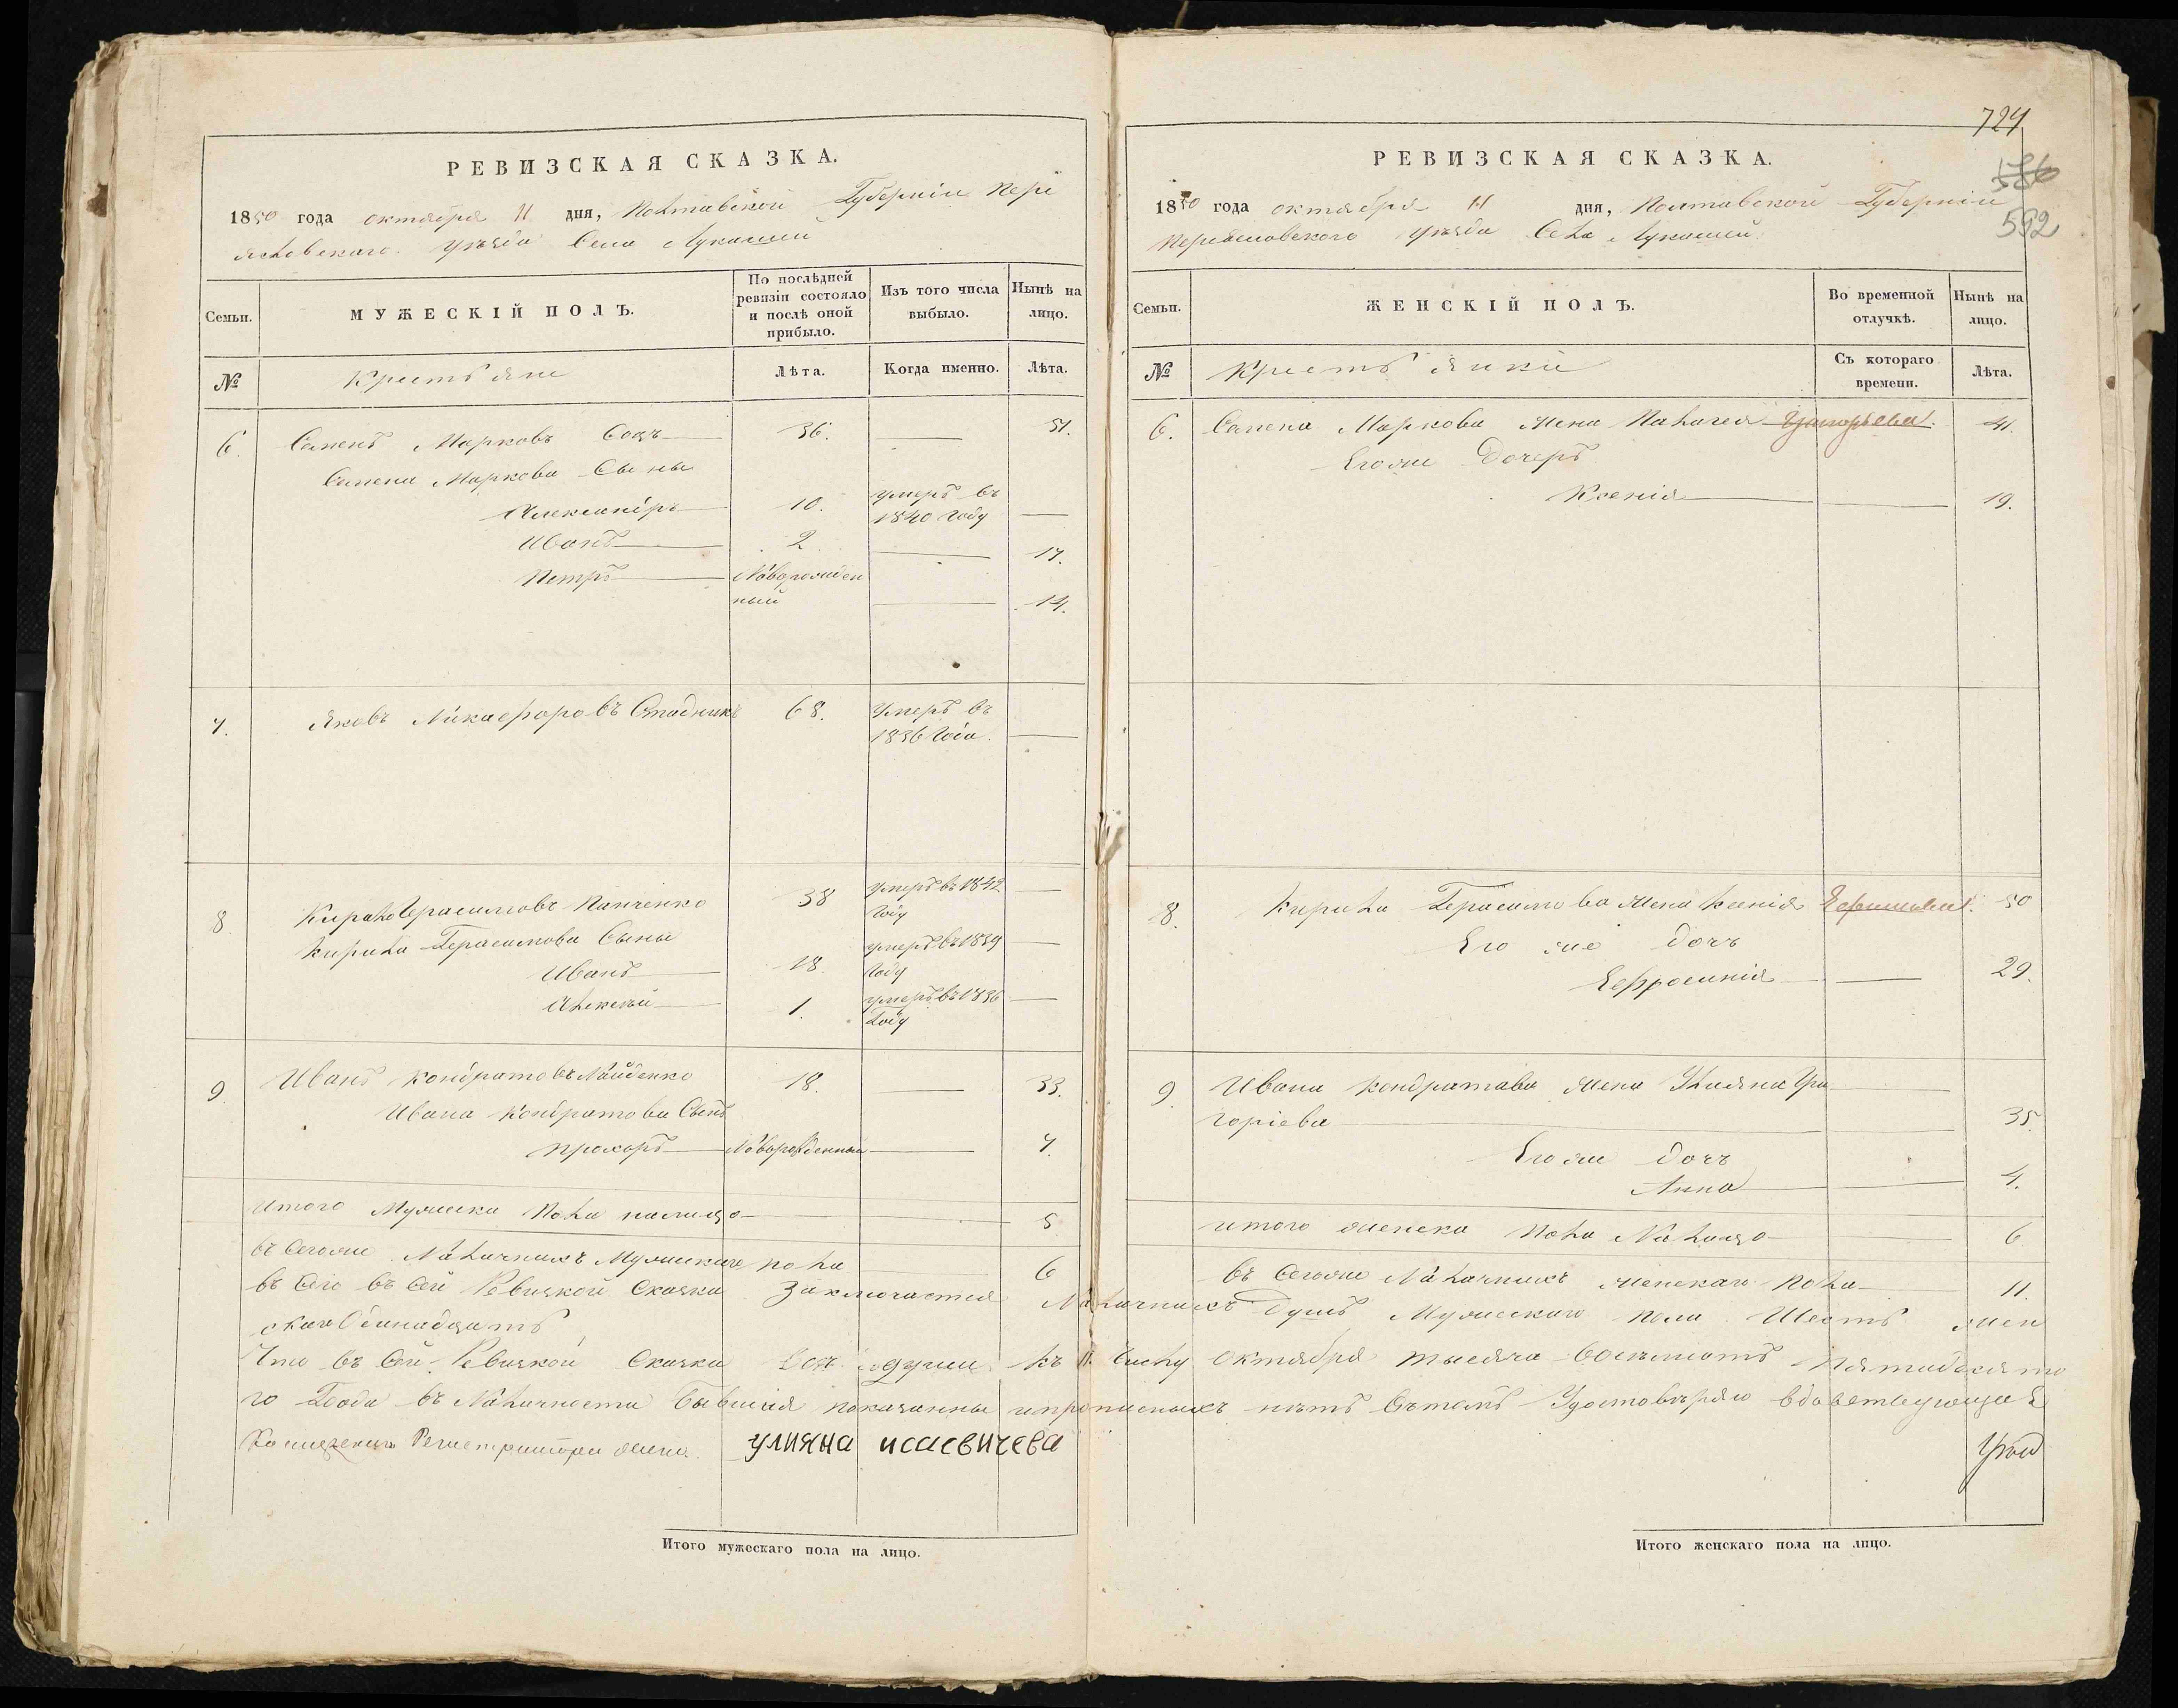 РЕВИЗСКАЯ СКАЗКА.
1850 года октября 11 дня, Полтавской Губернiи Пере
яславскаго уѣзда Села Лукашей
Семьи.
МУЖЕСКІЙ ПОЛЪ.
По послѣдней ревизіи состояло и послѣ оной прибыло.
Изъ того числа выбыло.
Нынѣ на лицо.
№
Крестьяне
Лѣта.
Когда именно.
Лѣта.
6. Семенъ Марковъ 36. 51.
Семена Маркова Сыны
Александръ 10. умеръ въ 1840 году
Иванъ 2. 17.
Петръ Новорожденный 14.
7. Яковъ Никифоровъ 68. Умеръ въ 1836 года.
8. Кирило Герасимовъ Панченко 38 умеръ въ 1842 году
Кирила Герасимова Сыны
Иванъ 18. умеръ въ 1839 году
Алексѣй 1. умеръ въ 1836 году
9. Иванъ Кондратовъ Найденко 18. 33.
Ивана Кондратова Сынъ
Прохоръ Новорожденный 7.
Итого Мужеска Пола налицо 5
въ Сегоже Наличныхъ Мужскаго пола 6
РЕВИЗСКАЯ СКАЗКА.
724
586
592
1850 года октября 11 дня, Полтавской Губерніи
Переясловского уѣзда Села Лукашей.
Семьи.
ЖЕНСКІЙ ПОЛЪ.
Во временной отлучкѣ.
Нынѣ на лицо.
№
Крестьянки
Съ котораго времени.
Лѣта.
6. Семена Маркова Жена Палагея Григорьева. 41.
Егоже Дочерь
Ксенія 19.
8. Кирила Герасимова Жена Ксенія Ефимова. 50
Его же дочь
Ефросинія 29.
9. Ивана Кондратова Жена Ульяна Гри
горіева 35.
Егоже дочь
Анна 4.
итого женска Пола На лицо 6
въ Сегоже Наличныхъ женскаго Пола 11.
въ Сего въ Сей Ревизкой Сказки Заключается Наличныхъ Душъ Мужескаго пола Шесть жен
скаго Одинадцать
Что въ Сей Ревизкой Сказки Все души къ 11 Числу Октября тысяча восемьсотъ Пятидесято
го Года въ Наличности Бывшія показанны и прописныхъ нѣтъ Вътомъ Удостовѣряю вдовствующая
Колежскаго Регистратора жена улияна исаевичева
Итого мужескаго пола на лицо.
Итого женскаго пола на лицо.